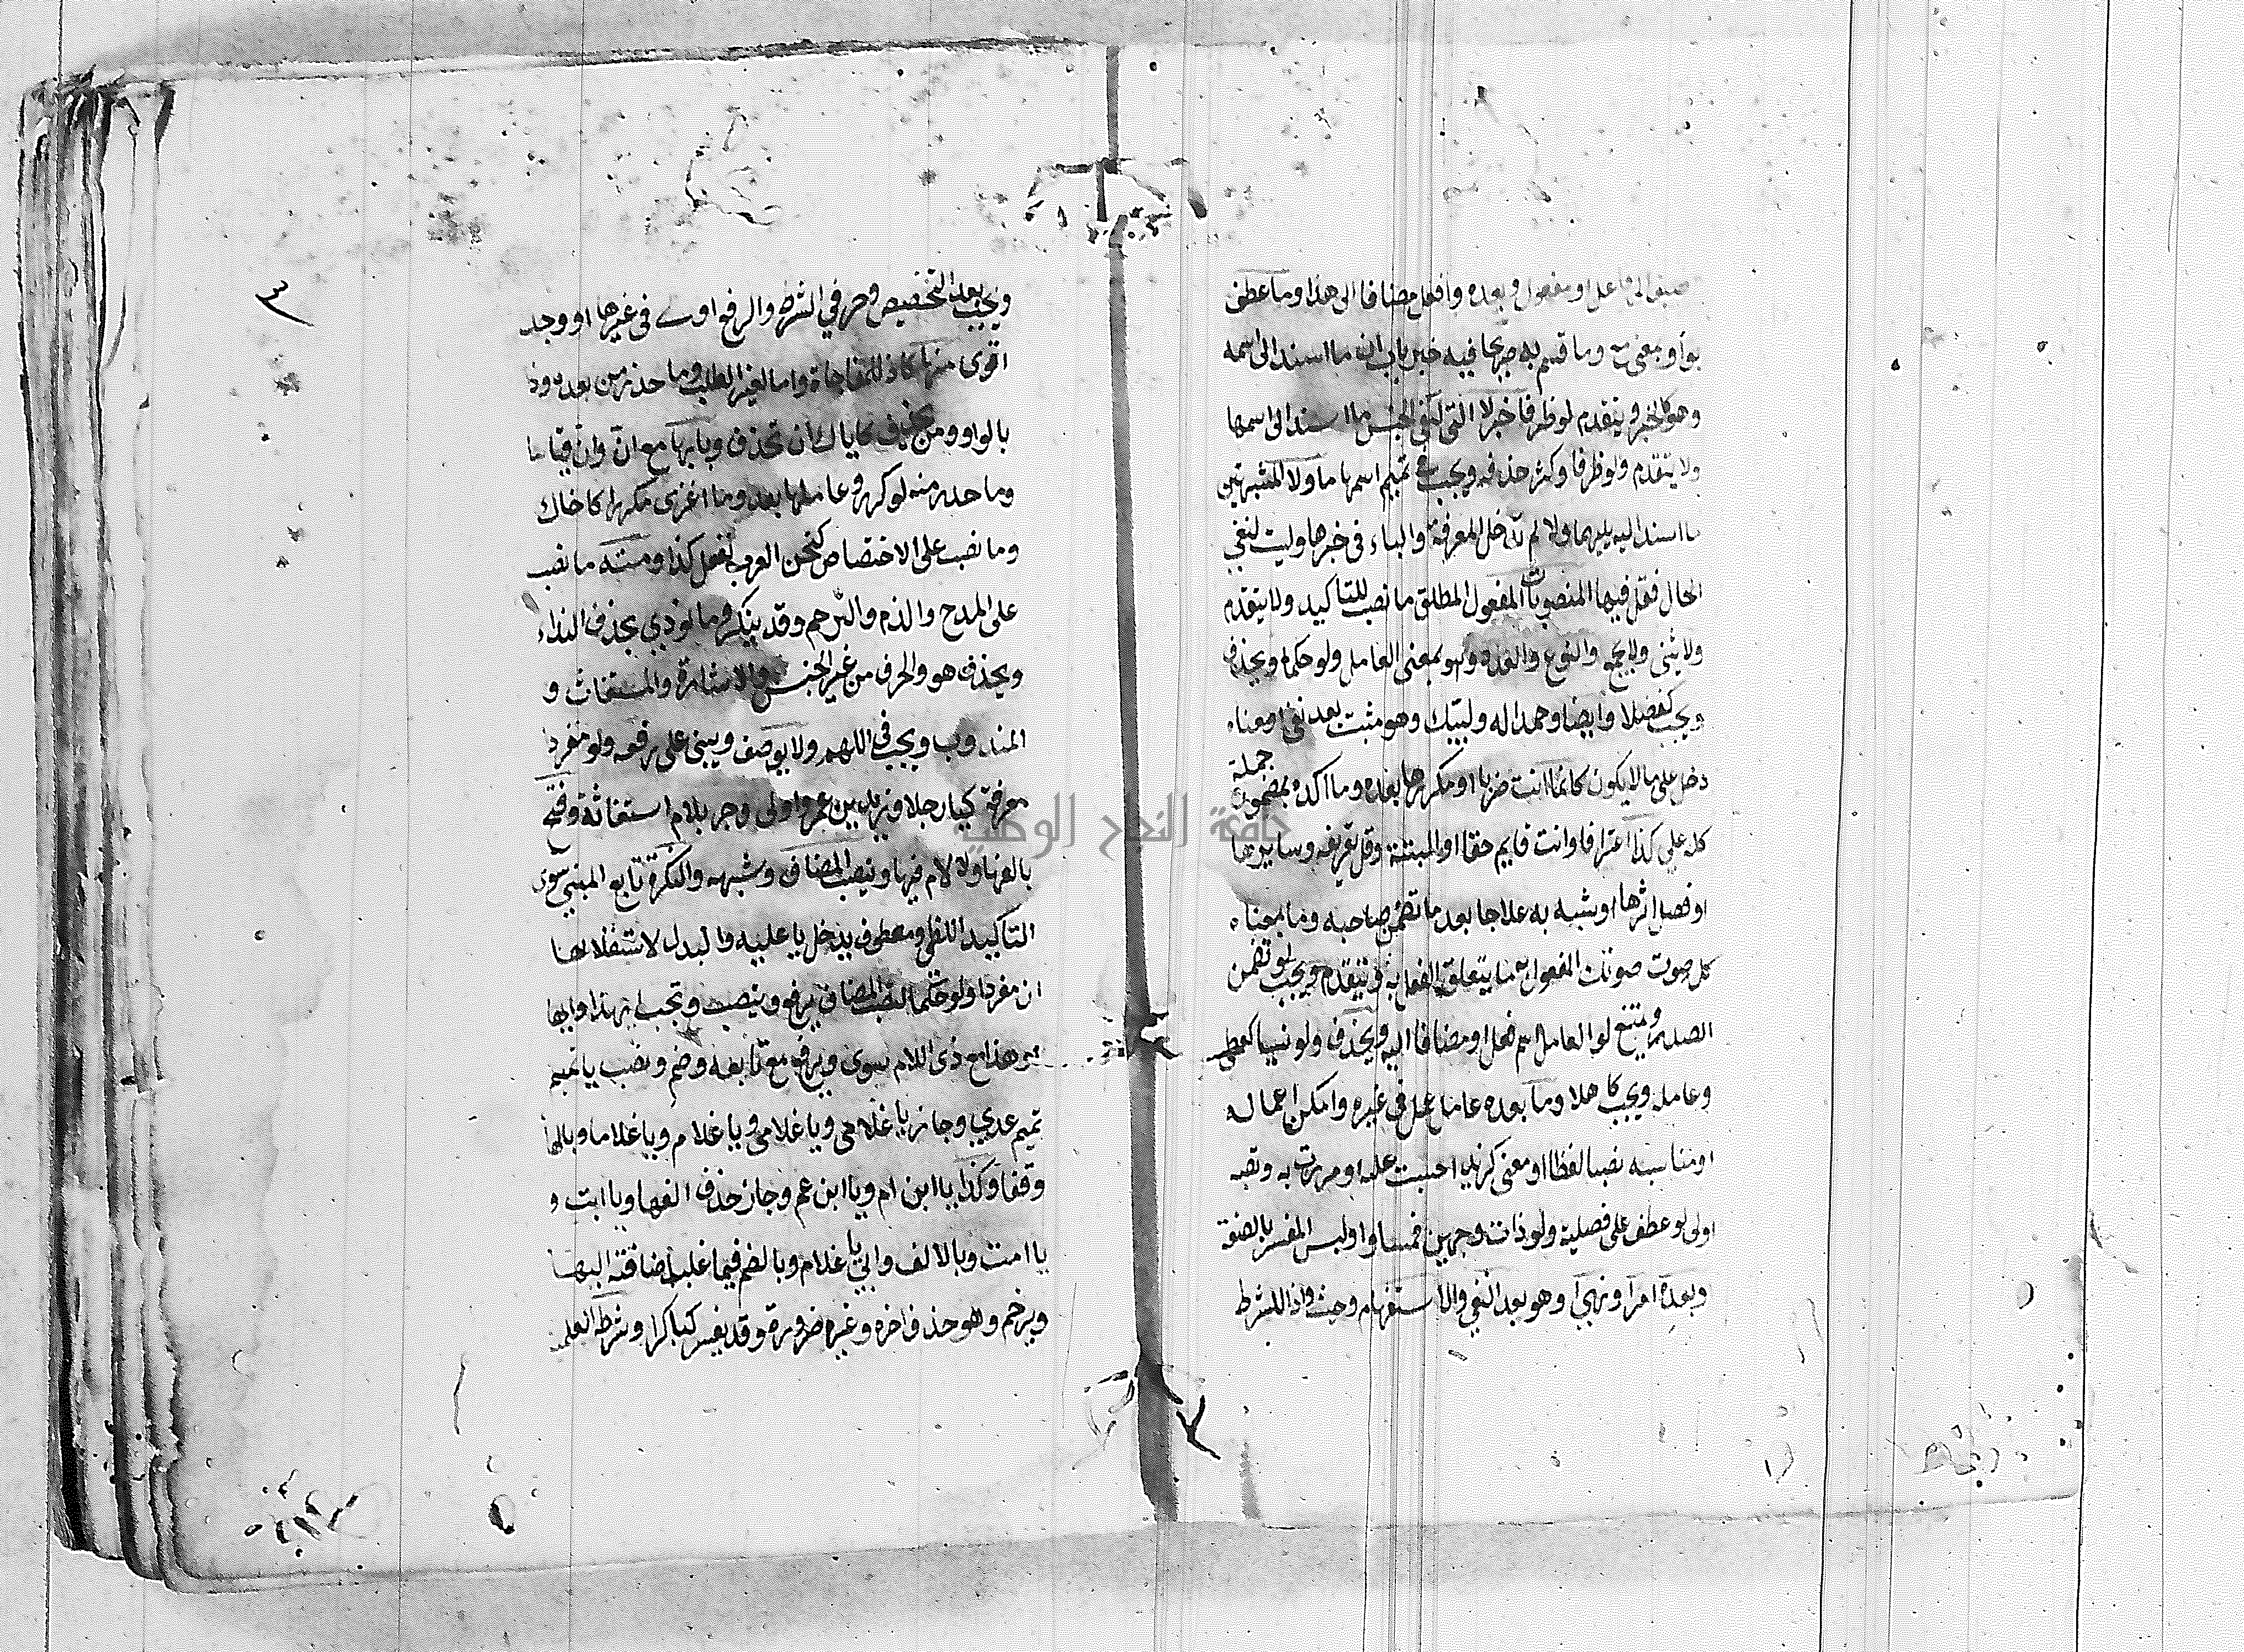 فاعل او مفعول وبعده وافعل مضافا الى هذا وما عطف
بواو بمعنى وما قسم به فيه خبر باب ان ما اسند الى اسمه
وهو كالخبر ويتقدم لو ظرفا خبر لا التى لنفى الجنس ما اسند الى اسمها
ولا يتقدم ولو ظرفا وكثر حذفه ويجب فى تميم اسم ما ولا المشبهتين
ما اسند اليه يليهما ولا لم تدخل المعرفة والباء فى خبرها وليت لنفى
الحال فقل فيها المنصوبات المفعول المطلق ما نصب للتاكيد ولا يتقدم
ولا يثنى ولا يجمع والنوع والعدد ولو بمعنى العامل ولو حكما ويحذف
ويجب كفضلا وايضا وحمدا له ولبيك وهو مثبت بعد نفى او معناه
دخل على ما لا يكون كانما انت ضربا او مكررها بعده وما اكد بمضمون جملة
كله على كذا اعترافا وانت قايم حقا او البتة وقل تعريفه وسايرها
او فصل اثرها او شبه به علاجا بعد ما تضمن صاحبه وما بمعناه
كل صوت صوتك المفعول به ما يتعلق الفعل به ويتقدم ويجب لو تضمن
الصدر ويمتنع لو العامل اسم فعل او مضافا اليه ويحذف ولو نسيا كعطى
وعامله ويجب كاهلا وما بعده عامل عمل فى غيره وامكن اعماله
او مناسبه نصبا لفظا او معنى كزيد احببت عليه او مررت به ونصبه
اولى لو عطف على فعلية ولو ذات وجهين فمساو او لبس المفسر بالصفة
وبعده امرا ونهيا وهو بعد النفى والاستفهام وحيث واذا للشرط
٣
ويجب بعد التحضيض وحرفي الشرط والرفع اولى فى غيرها او وجد
اقوى منها كاذا للمفاجاة واما لغير الطلب وما حذر من بعده وذا
بالواو ومن يحذف كاياك ان تحذف وبا يها مع ان وان قياسا
وما حذر منه لو كرر وعاملها بعد وما اغرى مكررا كاخاك
وما نصب على الاختصاص كنحن العرب نفعل كذا ومنه ما نصب
على المدح والذم والترحم وقد ينكر وما نودي بحذف النداء
ويحذف هو والحرف من غير الجنس والاشارة والمستغاث و
المندوب ويجب فى اللهم ولا يوصف ويبنى على رفعه ولو مفردا
معرفة كيا رجلا وزيد بين عمرو اولى وجر بلام استغاثة وفتح
بالفها ولا لام فيها وينصب المضاف وشبهه والنكرة تابع المبنى سوى
التاكيد اللفظى ومعطوف يدخل يا عليه والبدل لاستقلالهما
ان مفردا ولو حكما لنصب المضاف يرفع وينصب وتجب ايهذا وايها
وهذا مع ذى اللام سوى ويرفع مع تابعه وضم ونصب يا تميم
تميم عدي وجاز يا غلامى ويا غلامى ويا غلام ويا غلاما وبالها
وقفا وكذا يا ابن ام ويا ابن عم وجاز حذف الفها ويا ابت و
يا امت وبالالف وابى يا غلام وبالضم فيما غلب اضافته اليها
ويرخم وهو حذف اخره وغيره ضرورة وقد يغير كيا كرا وشرطه العلمية